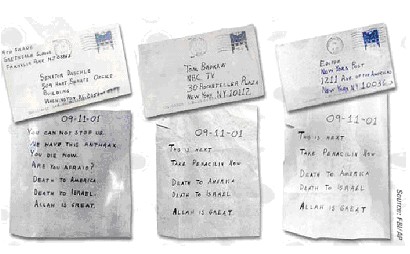 4TH GRADE
GREENDALE SCHOOL
FRANKLIN PARK NJ 08852
SENATOR DASCHLE
509 HART SENATE OFFICE
BUILDING
WASHINGTON D.C. 20510
TOM BROKAW
NBC TV
30 ROCKEFELLER PLAZA
NEW YORK NY 10112
EDITOR
NEW YORK POST
1211 AVE. OF THE AMERICAS
NEW YORK NY 10036
09-11-01
YOU CAN NOT STOP US.
WE HAVE THIS ANTHRAX.
YOU DIE NOW.
ARE YOU AFRAID?
DEATH TO AMERICA.
DEATH TO ISRAEL.
ALLAH IS GREAT.
09-11-01
THIS IS NEXT
TAKE PENACILIN NOW
DEATH TO AMERICA
DEATH TO ISRAEL
ALLAH IS GREAT
09-11-01
THIS IS NEXT
TAKE PENACILIN NOW
DEATH TO AMERICA
DEATH TO ISRAEL
ALLAH IS GREAT
Source: FBI/AP